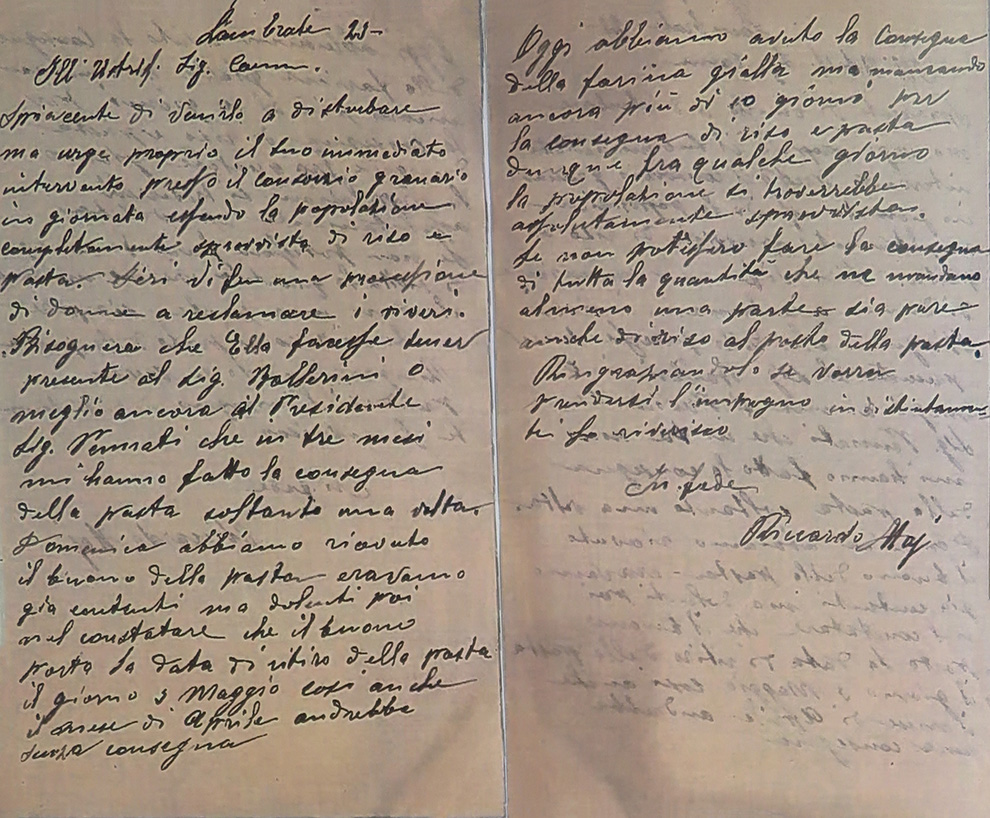 Lambrate 23-
Ill Ustrif. Sig. Caem.
Spiacente di venirlo a disturbare
ma urge proprio il suo immediato
intervento presso il consorzio granario
in giornata essendo la popolazione
completamente sprovvista di riso e
pasta. Ieri vi fu una processione
di donne a reclamare i viveri.
Bisognera che Ella facesse tener
presente al Sig. Ballerini o
meglio ancora al Presidente
Sig. Vennati che in tre mesi
mi hanno fatto la consegna
della pasta soltanto una volta.
Domenica abbiamo ricevuto
il buono della pasta eravamo
gia contenti ma dolenti poi
nel constatare che il buono
porta la data di ritiro della pasta
il giorno 3 Maggio cosi anche
il mese di Aprile andrebbe
senza consegna
Oggi abbiamo avuto la Consegna
della farina gialla ma mancando
ancora più di 10 giorni per
la consegna di riso e pasta
dunque fra qualche giorno
la popolazione si troverrebbe
assolutamente sprovvista.
Se non potessero fare la consegna
di tutta la quantità che ne mandano
almeno una parte sia pure
anche di riso al posto della pasta.
Ringraziandolo se vorra
prendersi l'impegno in distintamen-
te la riverisco
In fede
Riccardo